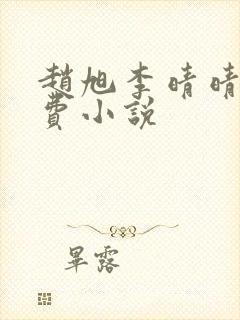 趙旭李晴晴
費小説
畢露